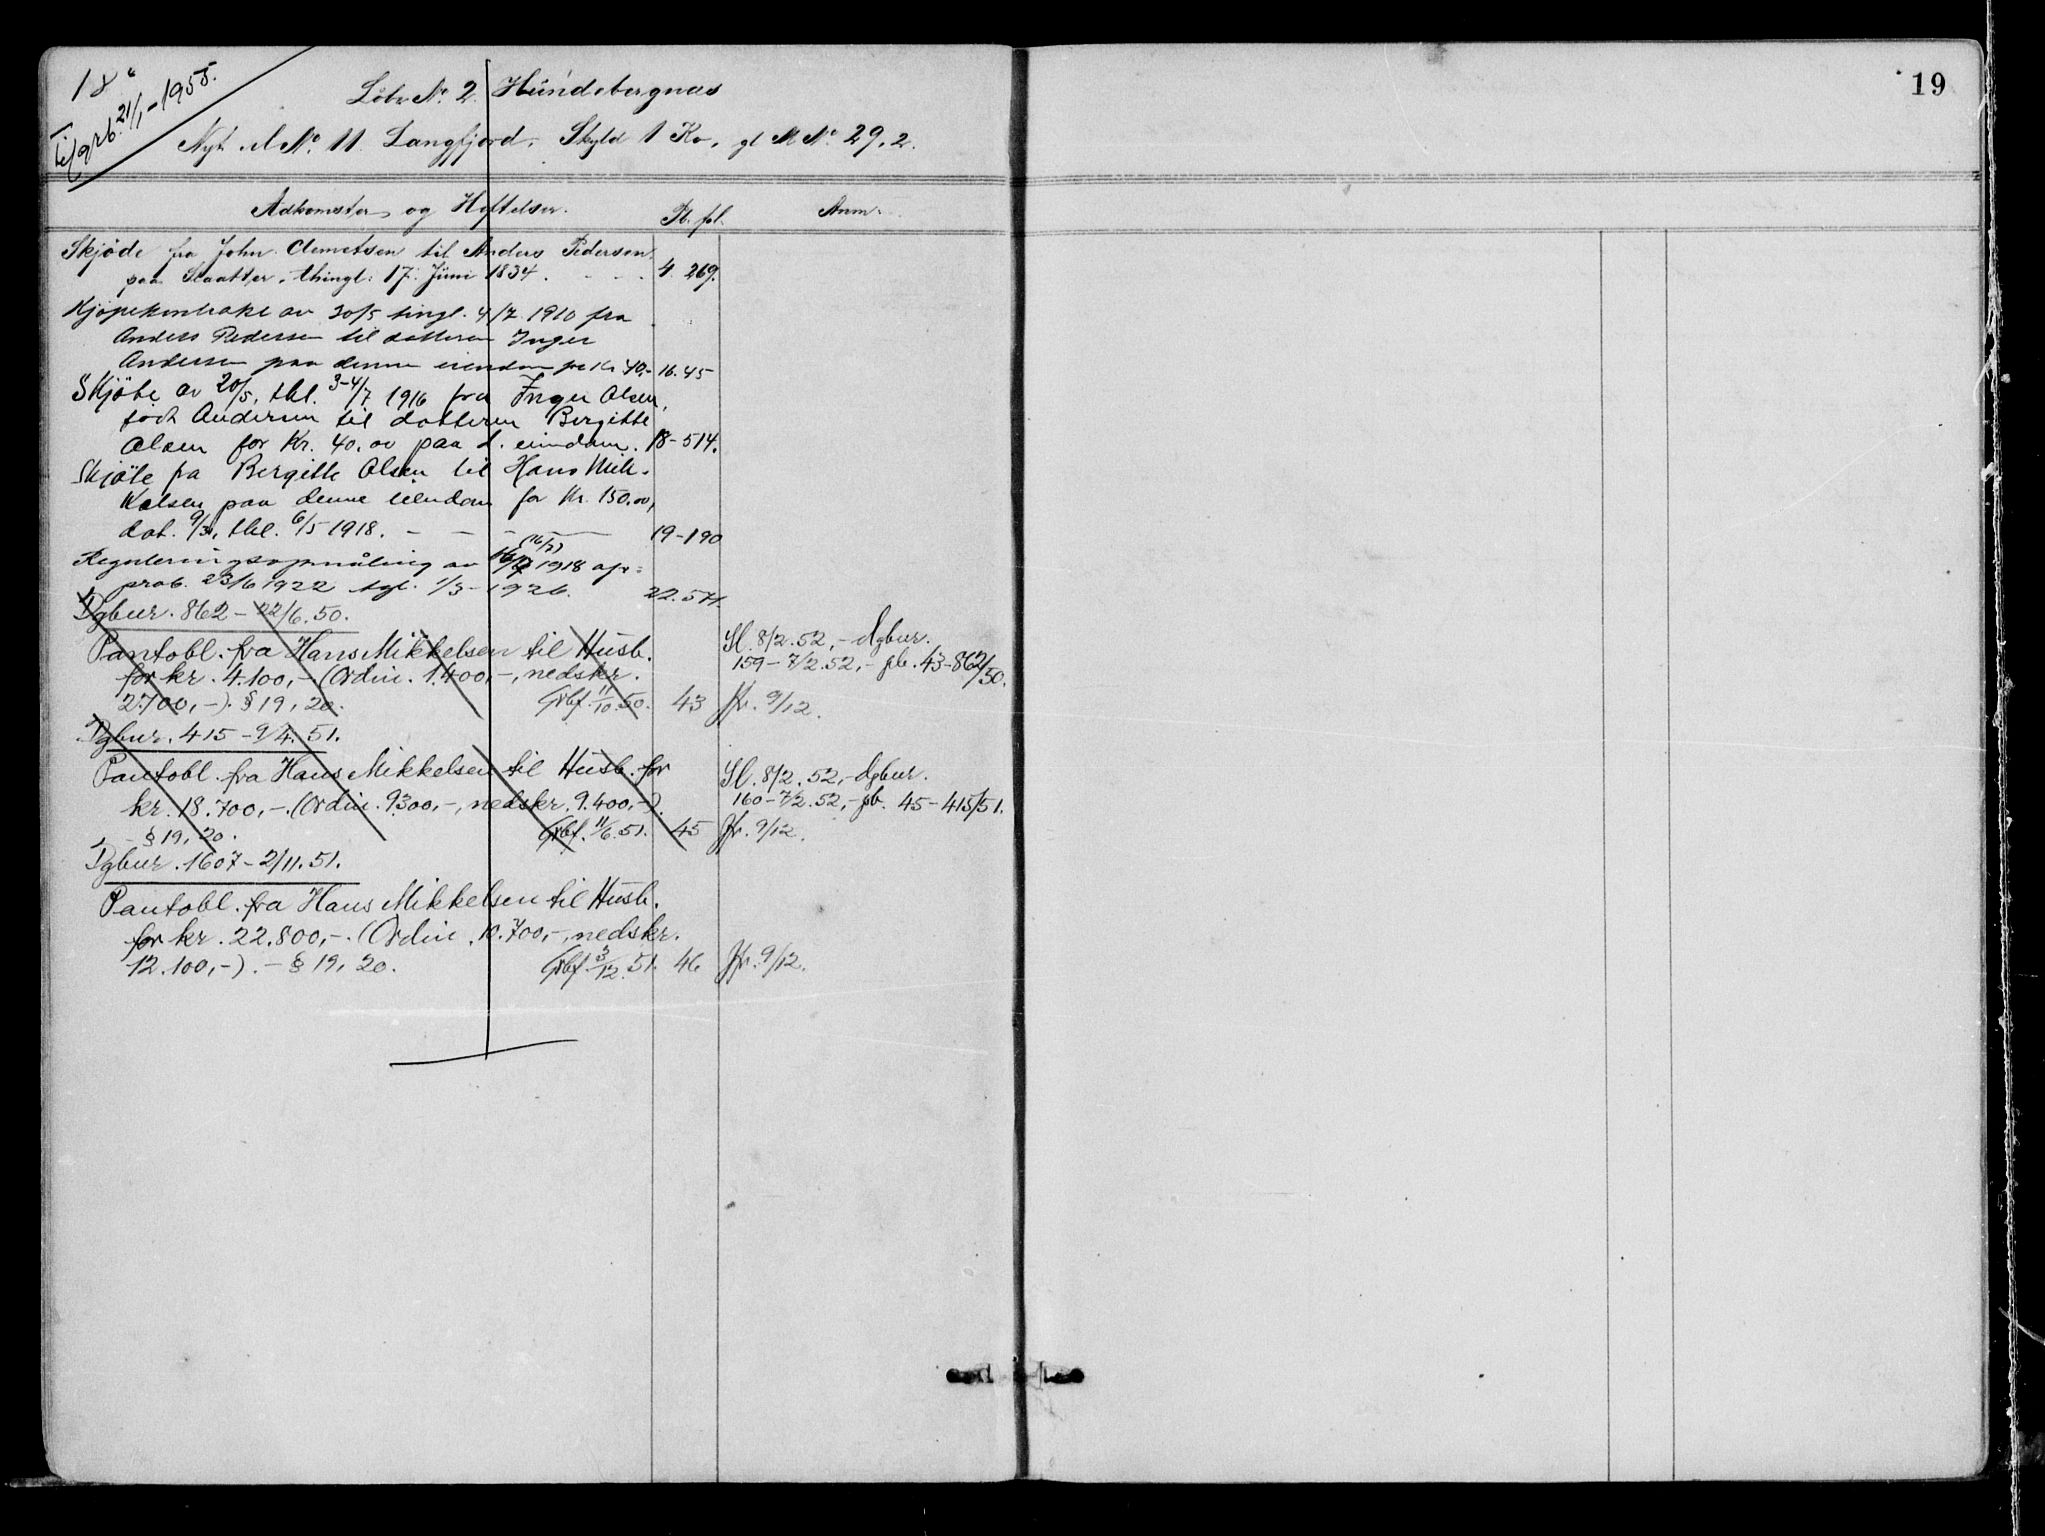 18
19
til grb. 21/1-1955.
Löbe No. 2. Hundebergnæs
Nyt M No. 11. Langfjord. Skyld 1 Kr. gl M No. 29,2.
Adkomster og Heftelser. Pb. fol. Anm.
Skjøde fra John Clemetsen til Anders Pedersen
paa Slaatter, thingl: 17. Juni 1834. 4 269.
Kjøpekontrakt av 30/5 tingl. 4/7 1910 fra
Anders Pedersen til datteren Inger
Andersen paa denne eiendom for Kr 40,- 16.45
Skjöte av 20/5, tbl. 3-4/7 1916 fra Inger Olsen,
født Andersen til datteren Bergitte
Olsen for Kr. 40,00 paa d. eiendom. 18-514.
Skjöte fra Bergitte Olsen til Hans Mik-
kelsen paa denne eiendom for Kr. 150.00,
dat. 9/3, tbl. 6/5 1918. - - - 19-190
(16/7)
Reguleringsopmåling av 1918 ap-
prob. 23/6 1922 tgl. 1/3-1926. 22.571.
Dgbnr. 862-22/6.50.
Pantobl. fra Hans Mikkelsen til Husb. Sl. 8/2.52,- dgbnr.
for kr. 4.100,- (Ordin. 1.400,-, nedskr. 159-7/2.52,- pb. 43-862/50.
2.700,-). § 19, 20. Grbf. 11/10.50. 43 Jfr. 9/12.
Dgbnr. 415-9/4.51.
Pantobl. fra Hans Mikkelsen til Husb. for Sl. 8/2.52,- dgbnr.
kr. 18.700,-. (Ordin. 9300,-, nedskr. 9.400,-). 160-7/2.52,- pb. 45-415/51.
§ 19, 20. Grbf. 11/6.51. 45 Jfr. 9/12.
Dgbnr. 1607-2/11.51.
Pantobl. fra Hans Mikkelsen til Husb.
for kr. 22.800,-. (Ordin. 10.700,-, nedskr.
12.100,-). - § 19, 20. Grbf. 3/12.51. 46 Jfr. 9/12.